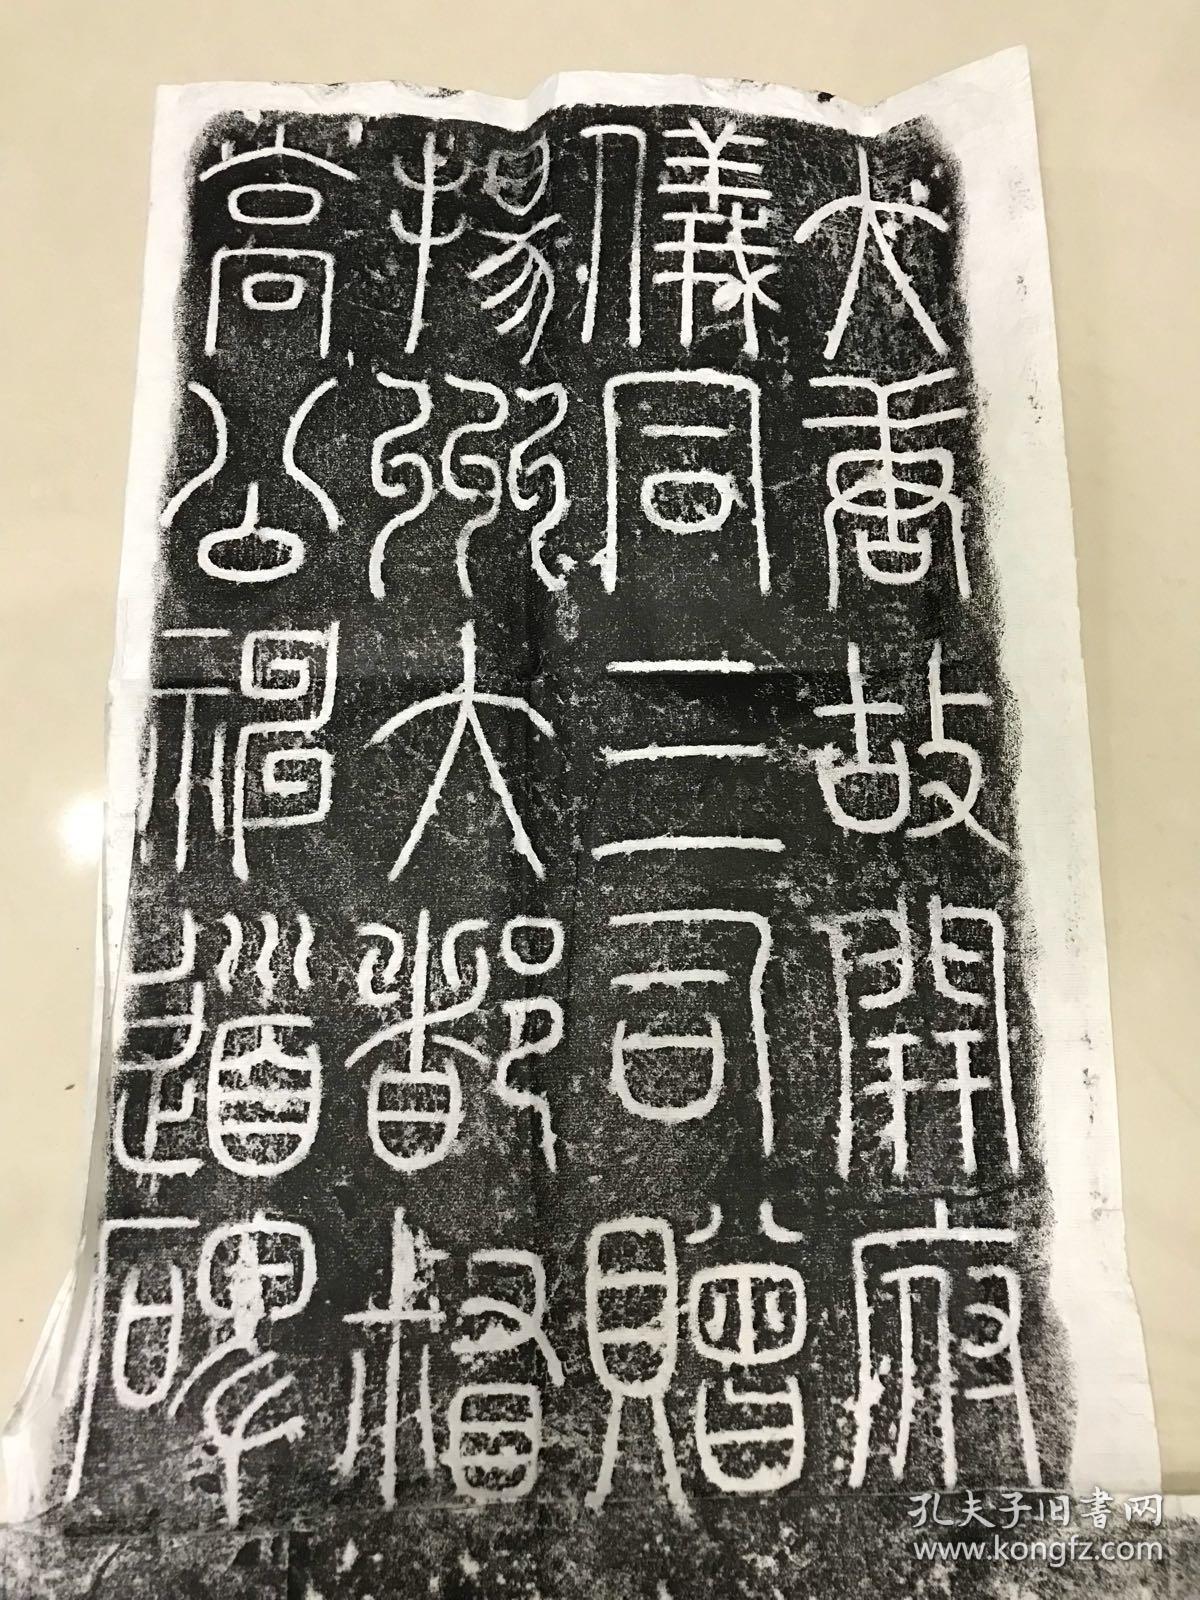 大唐故開府
儀同三司贈
揚州大都督
高公神道碑
孔夫子旧书网
www.kongfz.com